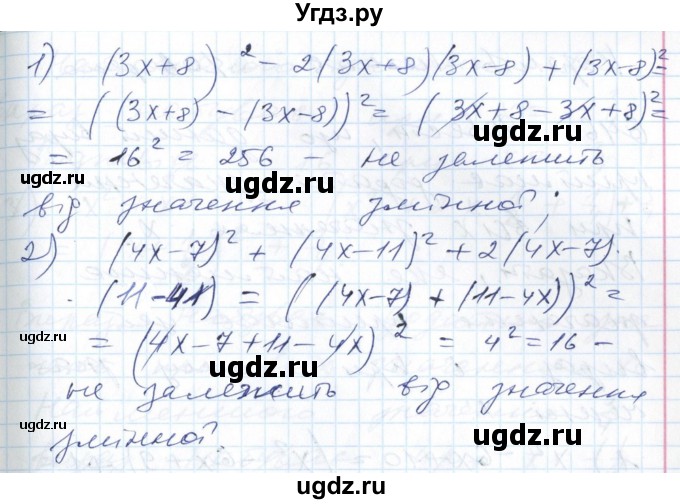 Угдз.ру
1) (3x+8)² - 2(3x+8)(3x-8) + (3x-8)² =
= ((3x+8) - (3x-8))² = (3x+8-3x+8)² =
= 16² = 256 - не залежить
від значення змінної;
2) (4x-7)² + (4x-11)² + 2(4x-7)·
·(11-4x) = ((4x-7) + (11-4x))² =
= (4x-7+11-4x)² = 4² = 16 -
не залежить від значення
змінної.
ugdz.ru
ugdz.ru
ugdz.ru
ugdz.ru
ugdz.ru
ugdz.ru
ugdz.ru
ugdz.ru
ugdz.ru
ugdz.ru